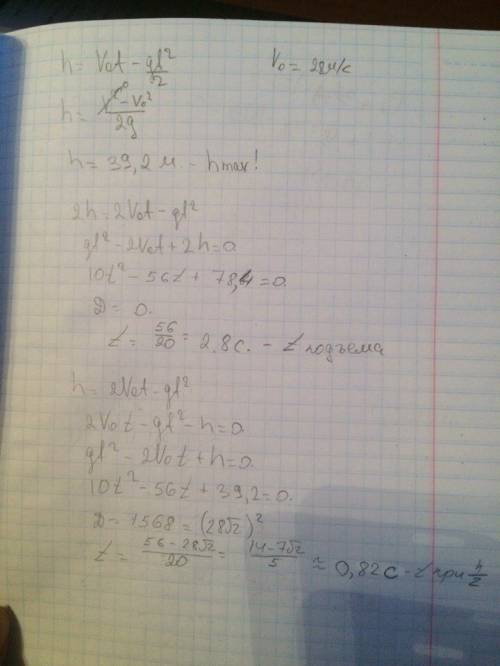 h = V₀t - gt²/2    V₀ = 28 м/с
h = (V² - V₀²)/2g
h = 39,2 м - hmax!
2h = 2V₀t - gt²
gt² - 2V₀t + 2h = 0
10t² - 56t + 78,4 = 0.
D = 0.
t = 56/20 = 2.8 с. - t подъема
h = 2V₀t - gt²
2V₀t - gt² - h = 0
gt² - 2V₀t + h = 0
10t² - 56t + 39,2 = 0.
D = 1568 = (28√2)²
t = (56 - 28√2)/20 = (14 - 7√2)/5 ≈ 0,82 с - t при h/2